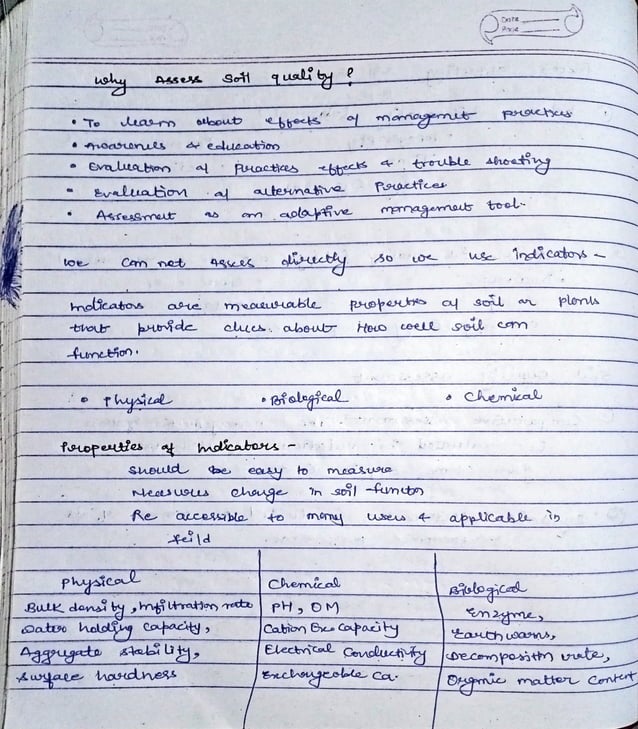 Date
Page
Why Assess Soil quality ?
• To learn about effects of management practices
• Awareness & education
• Evaluation of Practices effects & trouble shooting
• Evaluation of alternative Practices
• Assessment as an adaptive management tool.
We can not asses directly so we use indicators –
Indicators are measurable properties of soil or plants
that provide clues about How well soil can
function.
• Physical • Biological • Chemical
Properties of Indicators –
Should be easy to measure
Measures change in soil function
Be accessible to many users & applicable in
feild
Physical Chemical Biological
Bulk density, Infiltration rate PH, OM Enzyme,
Water holding capacity, Cation Exc. Capacity Earthwarms,
Aggregate stability, Electrical Conductivity Decomposition rate,
Surface hardness Exchangeable Ca. Organic matter Content